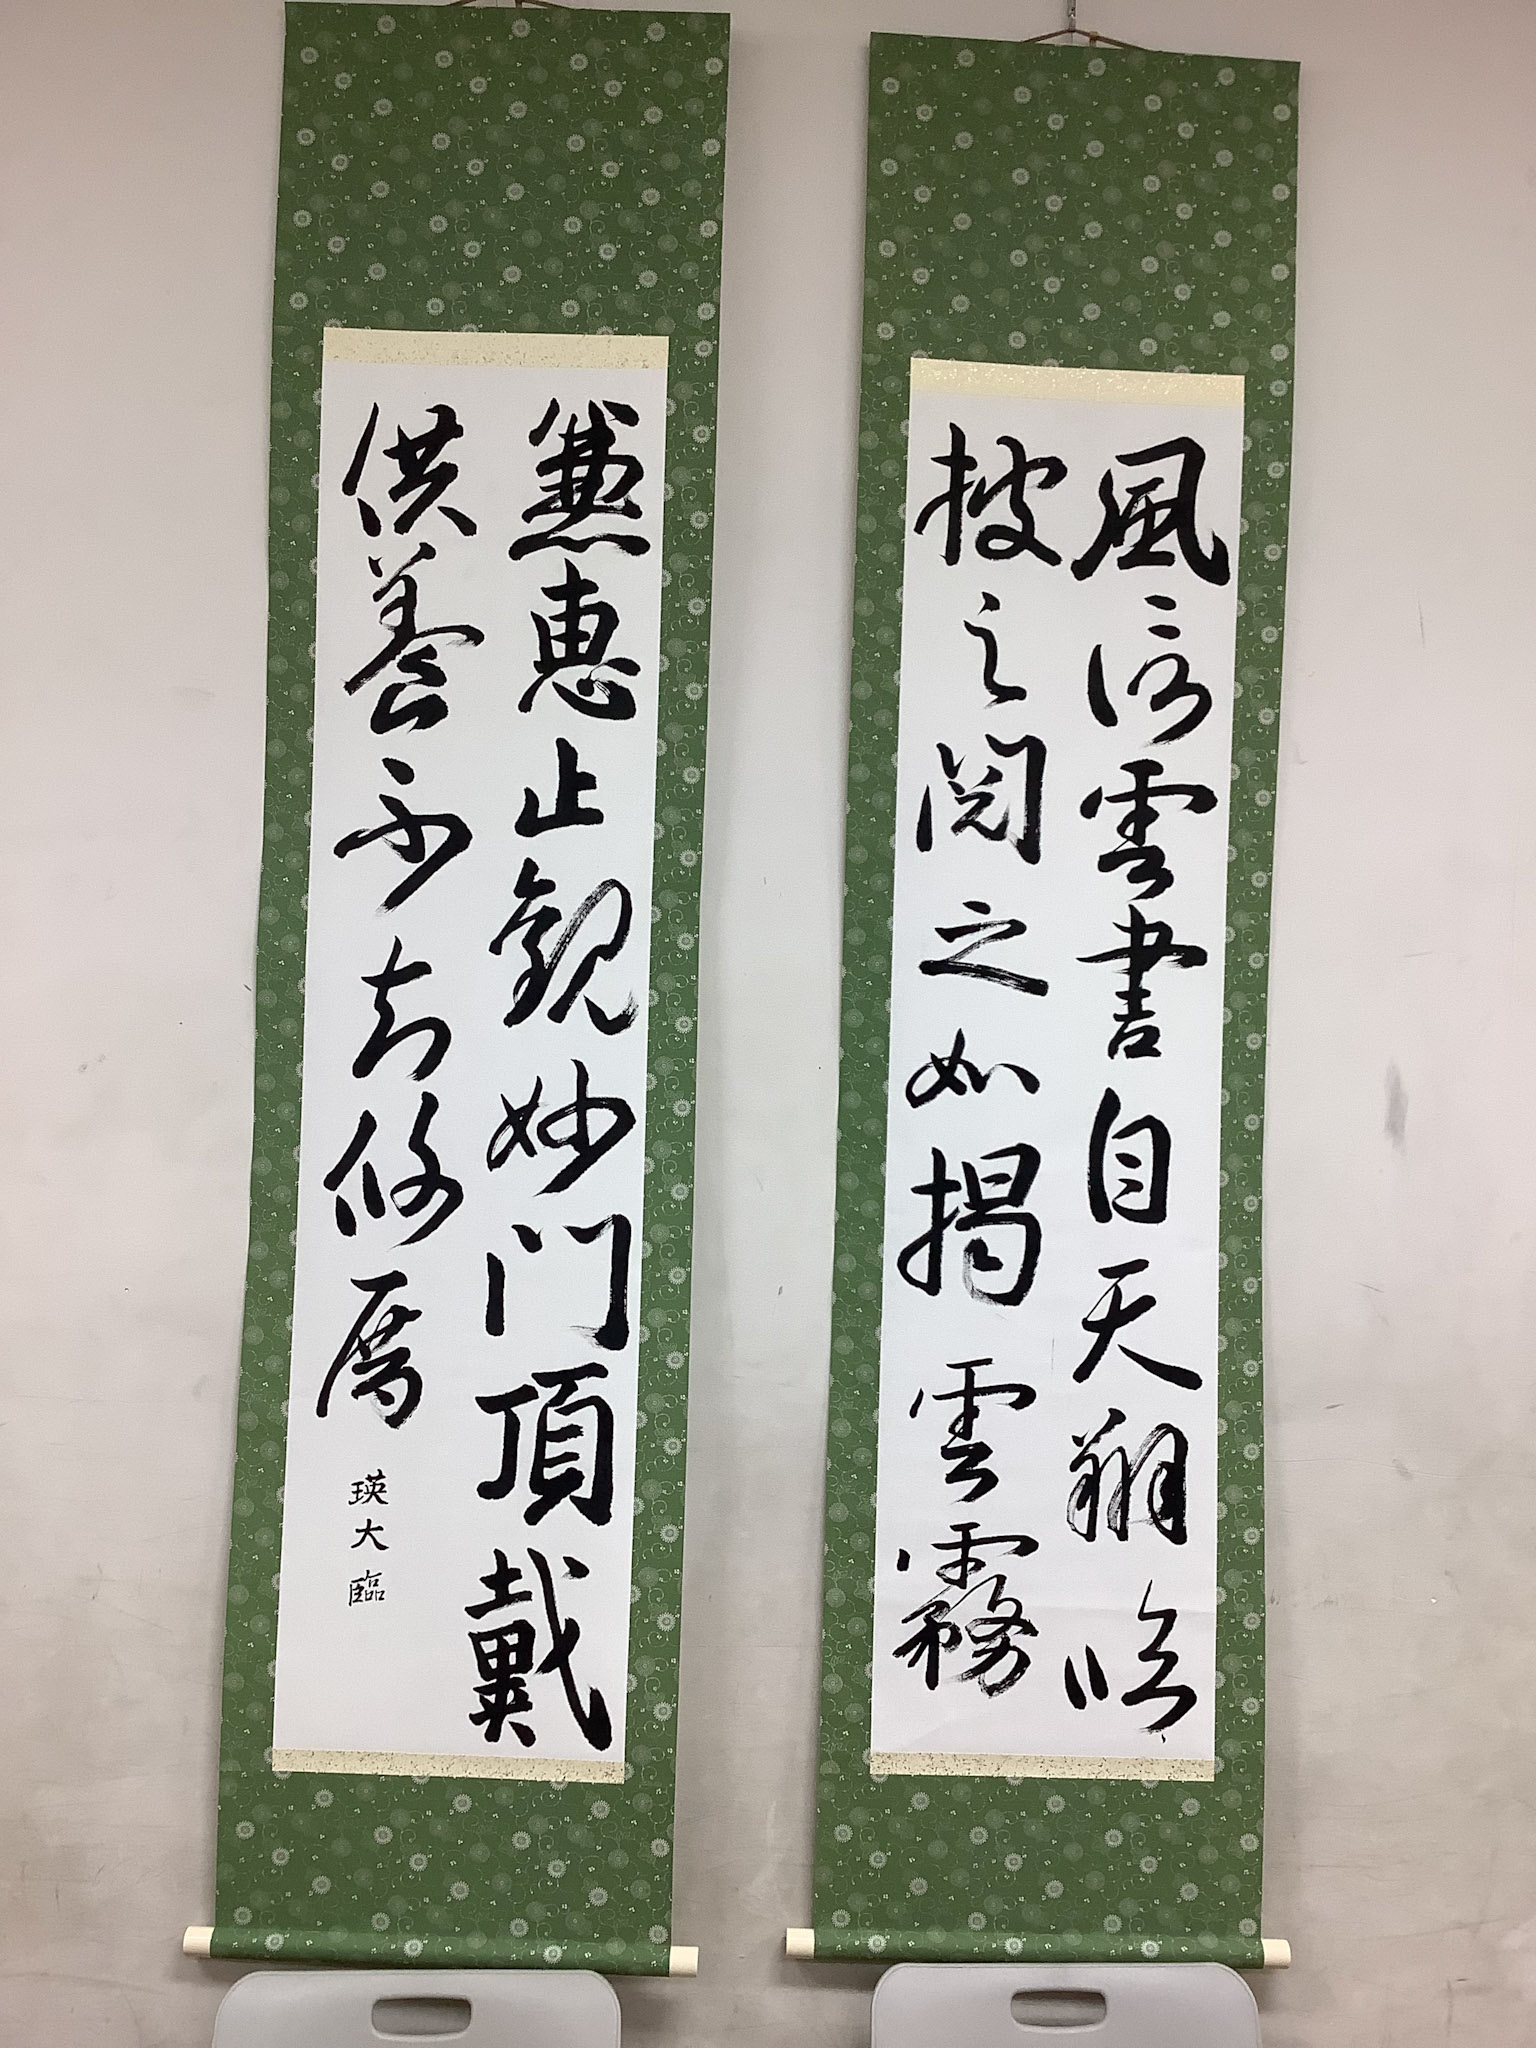 風信雲書自天翔臨
披之閲之如掲雲霧
兼恵止観妙門頂戴
供養不知攸厝
瑛大臨